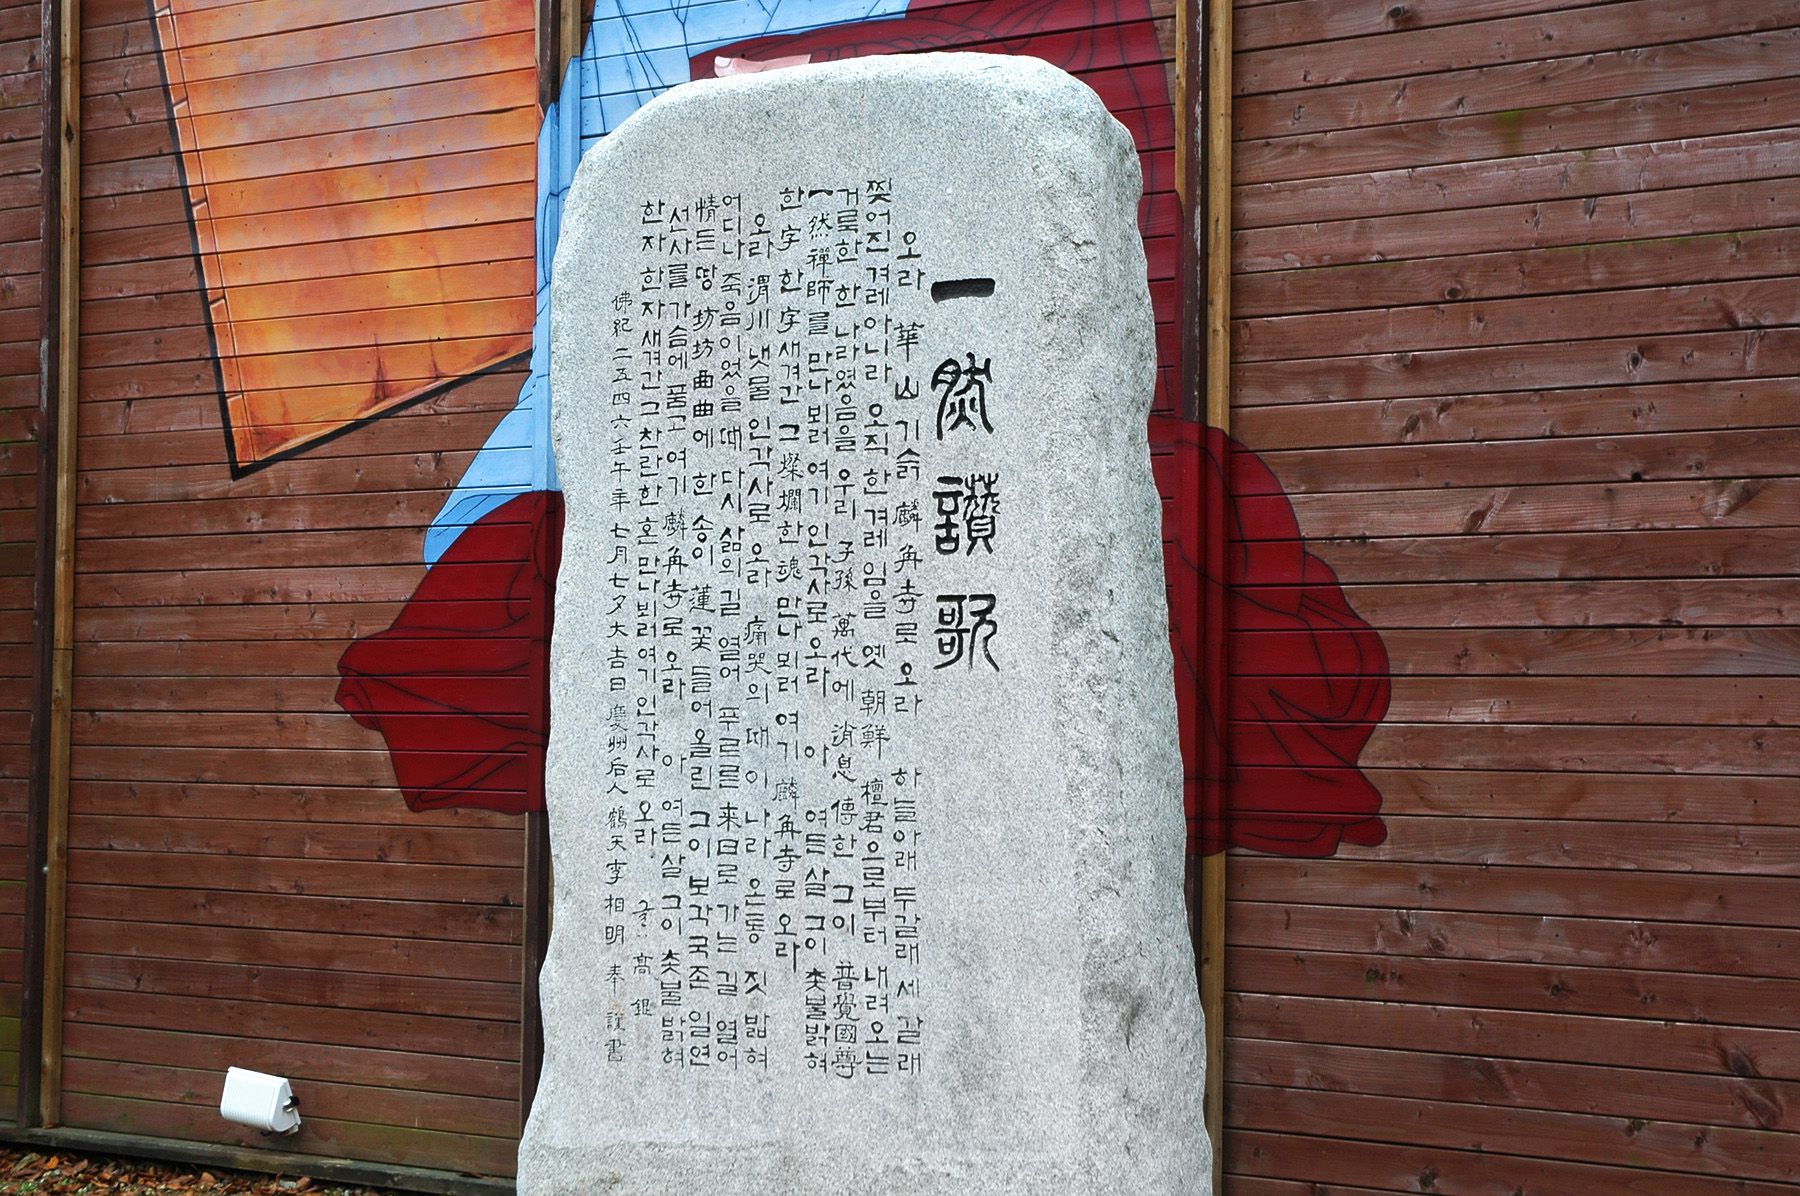 一然讚歌
오라 華山 기슭 麟角寺로 오라 하늘아래 두갈래 세 갈래
찢어진 겨레 아니라 오직 한 겨레 임을 옛 朝鮮 檀君으로부터 내려오는
거룩한 한 나라였음을 우리 子孫 萬代에 消息 傳한 그이 普覺國尊
一然禪師를 만나뵈러 여기 인각사로 오라 아 여든 살 그이 촛불밝혀
한字 한字 새겨간 그 燦爛한 魂 만나뵈러 여기 麟角寺로 오라
오라 渭川 냇물 인각사로 오라 痛哭의 때 이나라 온통 짓밟혀
어디나 죽음이었을 때 다시 삶의 길 열어 푸르른 来日로 가는 길 열어
情든 땅 坊坊曲曲에 한 송이 蓮꽃 들어 올린 그이 보각국존 일연
선사를 가슴에 품고 여기 麟角寺로 오라 아 여든살 그이 촛불밝혀
한자 한자 새겨간 그 찬란한 혼 만나뵈러 여기 인각사로 오라. 글. 高銀
佛紀 二五四六 壬午年 七月七夕 大吉日 慶州后人 鶴天 李相明 奉謹書